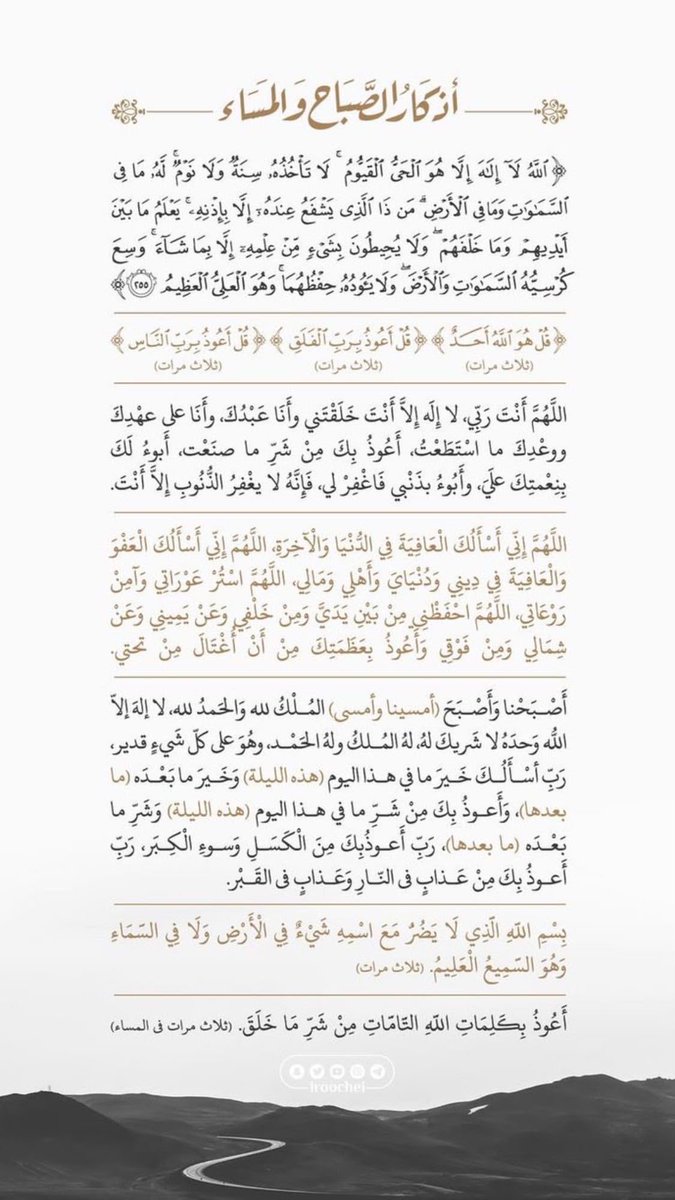 أذكار الصَّبَاح وَالمَسَاء
﴿ ٱللَّهُ لَآ إِلَٰهَ إِلَّا هُوَ ٱلْحَىُّ ٱلْقَيُّومُ ۚ لَا تَأْخُذُهُۥ سِنَةٌ وَلَا نَوْمٌ ۚ لَّهُۥ مَا فِى
ٱلسَّمَٰوَٰتِ وَمَا فِى ٱلْأَرْضِ ۗ مَن ذَا ٱلَّذِى يَشْفَعُ عِندَهُۥٓ إِلَّا بِإِذْنِهِۦ ۚ يَعْلَمُ مَا بَيْنَ
أَيْدِيهِمْ وَمَا خَلْفَهُمْ ۖ وَلَا يُحِيطُونَ بِشَىْءٍ مِّنْ عِلْمِهِۦٓ إِلَّا بِمَا شَآءَ ۚ وَسِعَ
كُرْسِيُّهُ ٱلسَّمَٰوَٰتِ وَٱلْأَرْضَ ۖ وَلَا يَـُٔودُهُۥ حِفْظُهُمَا ۚ وَهُوَ ٱلْعَلِىُّ ٱلْعَظِيمُ ٢٥٥ ﴾
﴿ قُلْ هُوَ ٱللَّهُ أَحَدٌ ﴾ ﴿ قُلْ أَعُوذُ بِرَبِّ ٱلْفَلَقِ ﴾ ﴿ قُلْ أَعُوذُ بِرَبِّ ٱلنَّاسِ ﴾
(ثلاث مرات) (ثلاث مرات) (ثلاث مرات)
اللَّهُمَّ أَنْتَ رَبِّي، لا إِلَه إِلاَّ أَنْتَ خَلَقْتَني وأَنَا عَبْدُكَ، وأَنَا على عهْدِكَ
ووعْدِكَ ما اسْتَطَعْتُ، أَعُوذُ بِكَ مِنْ شَرِّ ما صنَعْت، أَبوءُ لَكَ
بِنِعْمتِكَ علَيَ، وأَبُوءُ بذَنْبي فَاغْفِرْ لي، فَإِنَّهُ لا يغْفِرُ الذُّنُوبِ إِلاَّ أَنْتَ.
اللَّهُمَّ إِنِّي أَسْأَلُكَ الْعَافِيَةَ فِي الدُّنْيَا وَالْآخِرَةِ، اللَّهُمَّ إِنِّي أَسْأَلُكَ الْعَفْوَ
وَالْعَافِيَةَ فِي دِينِي وَدُنْيَايَ وَأَهْلِي وَمَالِي، اللَّهُمَّ اسْتُرْ عَوْرَاتِي وَآمِنْ
رَوْعَاتِي، اللَّهُمَّ احْفَظْنِي مِنْ بَيْنِ يَدَيَّ وَمِنْ خَلْفِي وَعَنْ يَمِينِي وَعَنْ
شِمَالِي وَمِنْ فَوْقِي وَأَعُوذُ بِعَظَمَتِكَ مِنْ أَنْ أُغْتَالَ مِنْ تَحتِي.
أَصْـبَحْنا وَأَصْـبَحَ (أمسينا وأمسى) المُـلْكُ لله وَالحَمدُ لله، لا إلهَ إلاّ
اللّه وَحدَهُ لا شَريكَ لهُ، لهُ المُـلكُ ولهُ الحَمْـد، وهُوَ على كلّ شَيءٍ قدير،
رَبِّ أسْـأَلُـكَ خَـيرَ ما في هـذا اليوم (هذه الليلة) وَخَيرَ ما بَعْـدَه (ما
بعدها)، وَأَعـوذُ بِكَ مِنْ شَـرِّ ما في هـذا اليوم (هذه الليلة) وَشَرِّ ما
بَعْـدَه (ما بعدها)، رَبِّ أَعـوذُبِكَ مِنَ الْكَسَـلِ وَسـوءِ الْكِـبَر، رَبِّ
أَعـوذُ بِكَ مِنْ عَـذابٍ في النّـارِ وَعَـذابٍ في القَـبْر.
بِسْمِ اللّهِ الّذِي لَا يَضُرُّ مَعَ اسْمِهِ شَيْءٌ فِي الْأَرْضِ وَلَا فِي السّمَاءِ
وَهُوَ السّمِيعُ الْعَلِيمُ. (ثلاث مرات)
أَعُوذُ بِكَلِمَاتِ اللّهِ التّامّاتِ مِنْ شَرِّ مَا خَلَقَ. (ثلاث مرات في المساء)
iroochei